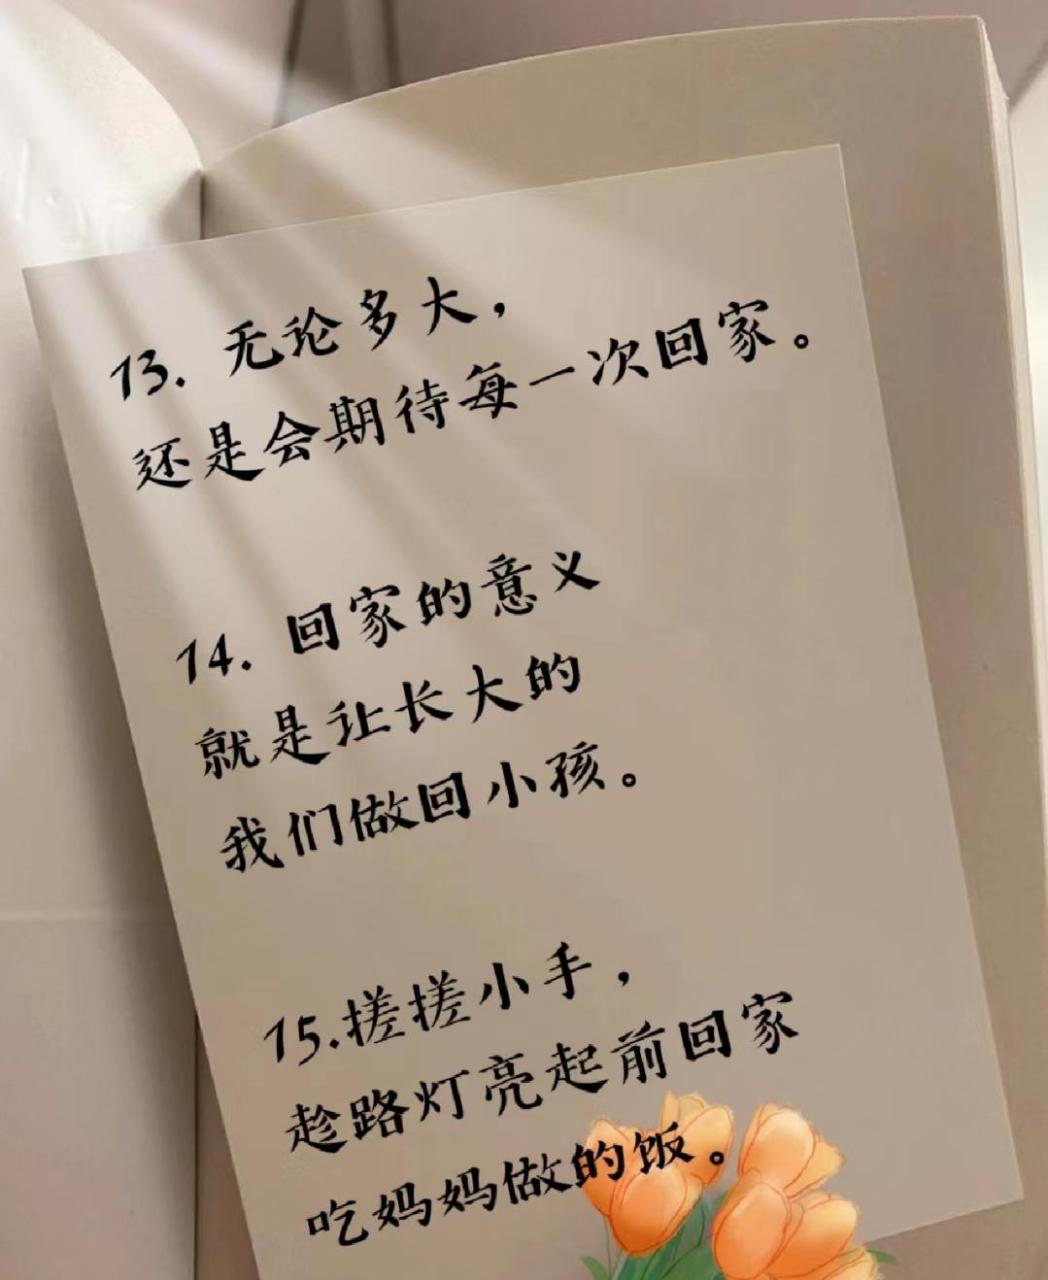 13. 无论多大，
还是会期待每一次回家。
14. 回家的意义
就是让长大的
我们做回小孩。
15.搓搓小手，
趁路灯亮起前回家
吃妈妈做的饭。